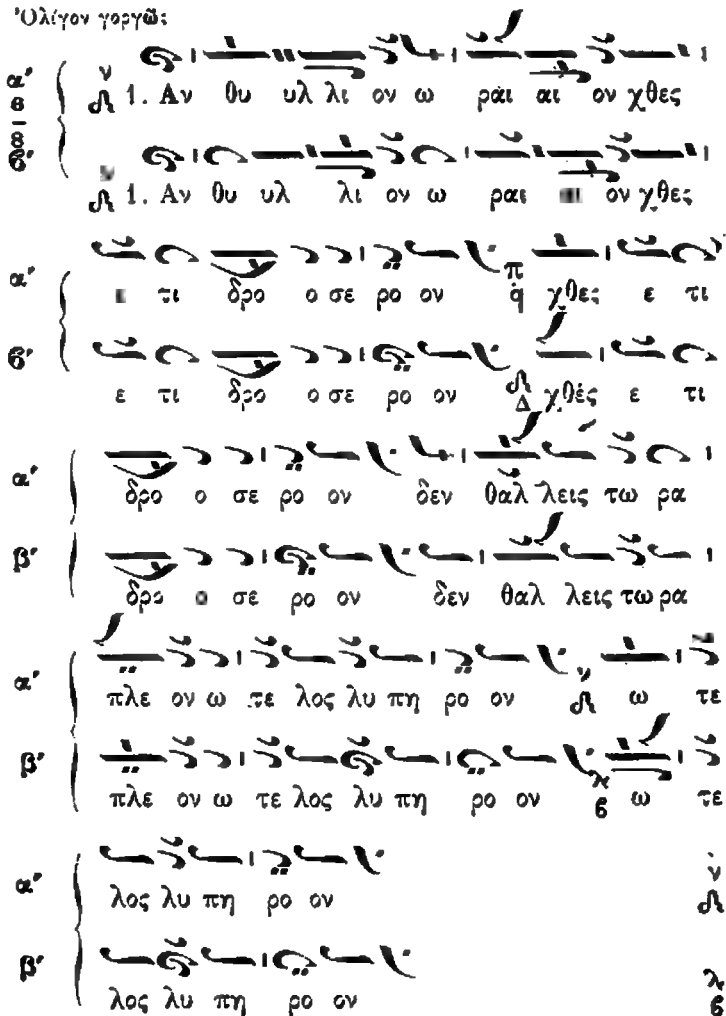 Ὀλίγον γοργῶς
α' 1. Αν θυ υλ λι ον ω ραι αι ον χθες
β' 1. Αν θυ υλ λι ον ω ραι ον χθες
α' ε τι δρο ο σε ρο ον π q χθες ε τι
β' ε τι δρο ο σε ρο ον Δ χθές ε τι
α' δρο ο σε ρο ον δεν θαλ λεις τω ρα
β' δρο ο σε ρο ον δεν θαλ λεις τω ρα
α' πλε ον ω τε λος λυ πη ρο ον ν ω τε
β' πλε ον ω τε λος λυ πη ρο ον ω τε
α' λος λυ πη ρο ον ν
β' λος λυ πη ρο ον